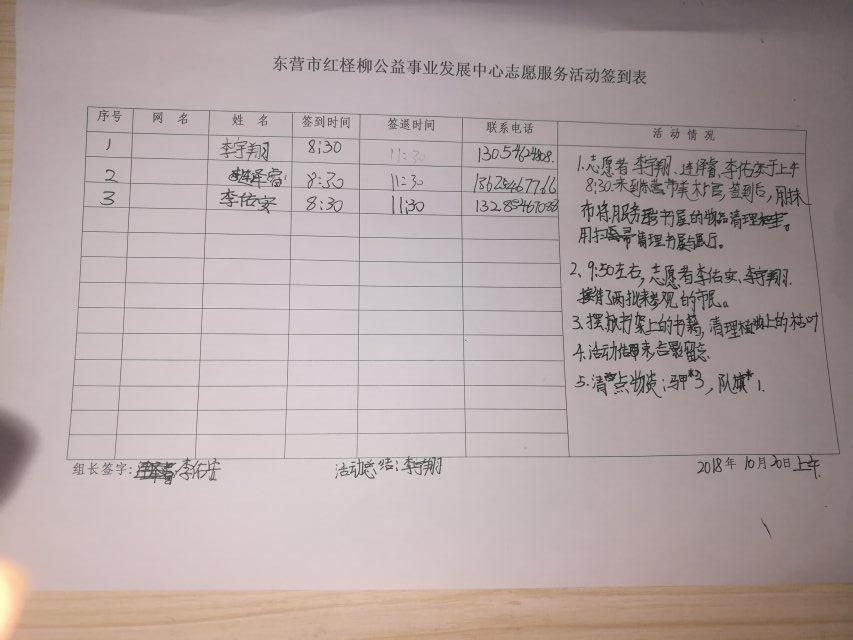 东营市红柽柳公益事业发展中心志愿服务活动签到表
序号 网 名 姓 名 签到时间 签退时间 联系电话 活 动 情 况
1 李宇翔 8:30 11:30
2 连泽睿 8:30 11:30 13625467766
3 李佑安 8:30 11:30
1.志愿者李宇翔、连泽睿、李佑安于上午
8:30来到东营市 签到后,用抹
布将服务 书屋的物品清理 。
用扫 清理书屋 厅。
2、9:50左右,志愿者李佑安、李宇翔.
接待了两批来参观的市民。
3、摆放书架上的书籍,清理植物上的枯叶
4、活动结束合影留念.
5、清点物资:马甲*3,队旗*1.
组长签字: 李佑安 活动总结:李宇翔 2018年10月20日上午.